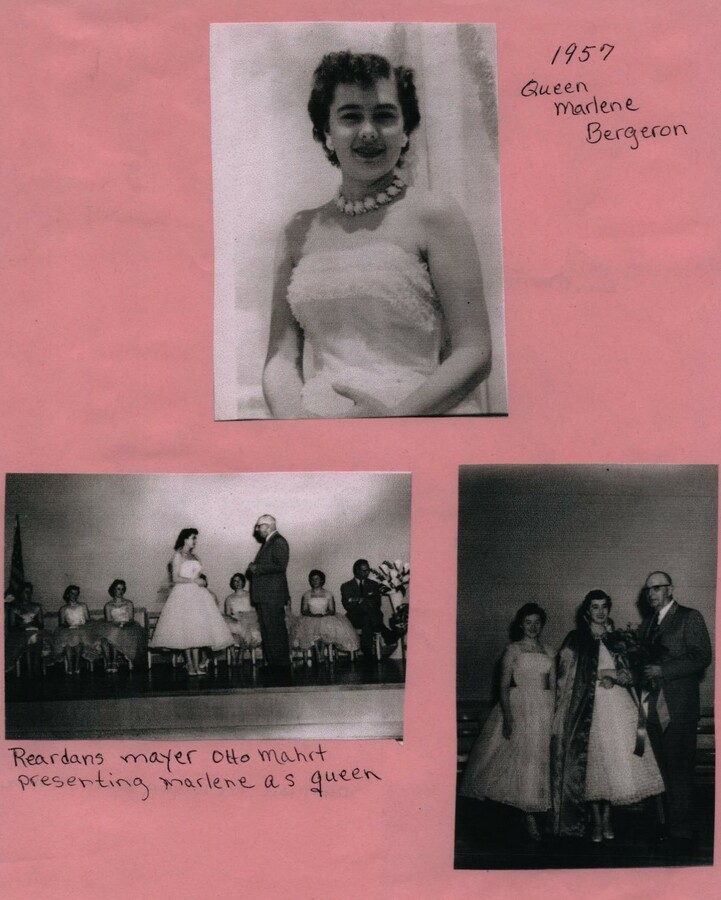 1957
Queen
Marlene
Bergeron
Reardans mayer Otto Mahrt
presenting marlene as queen